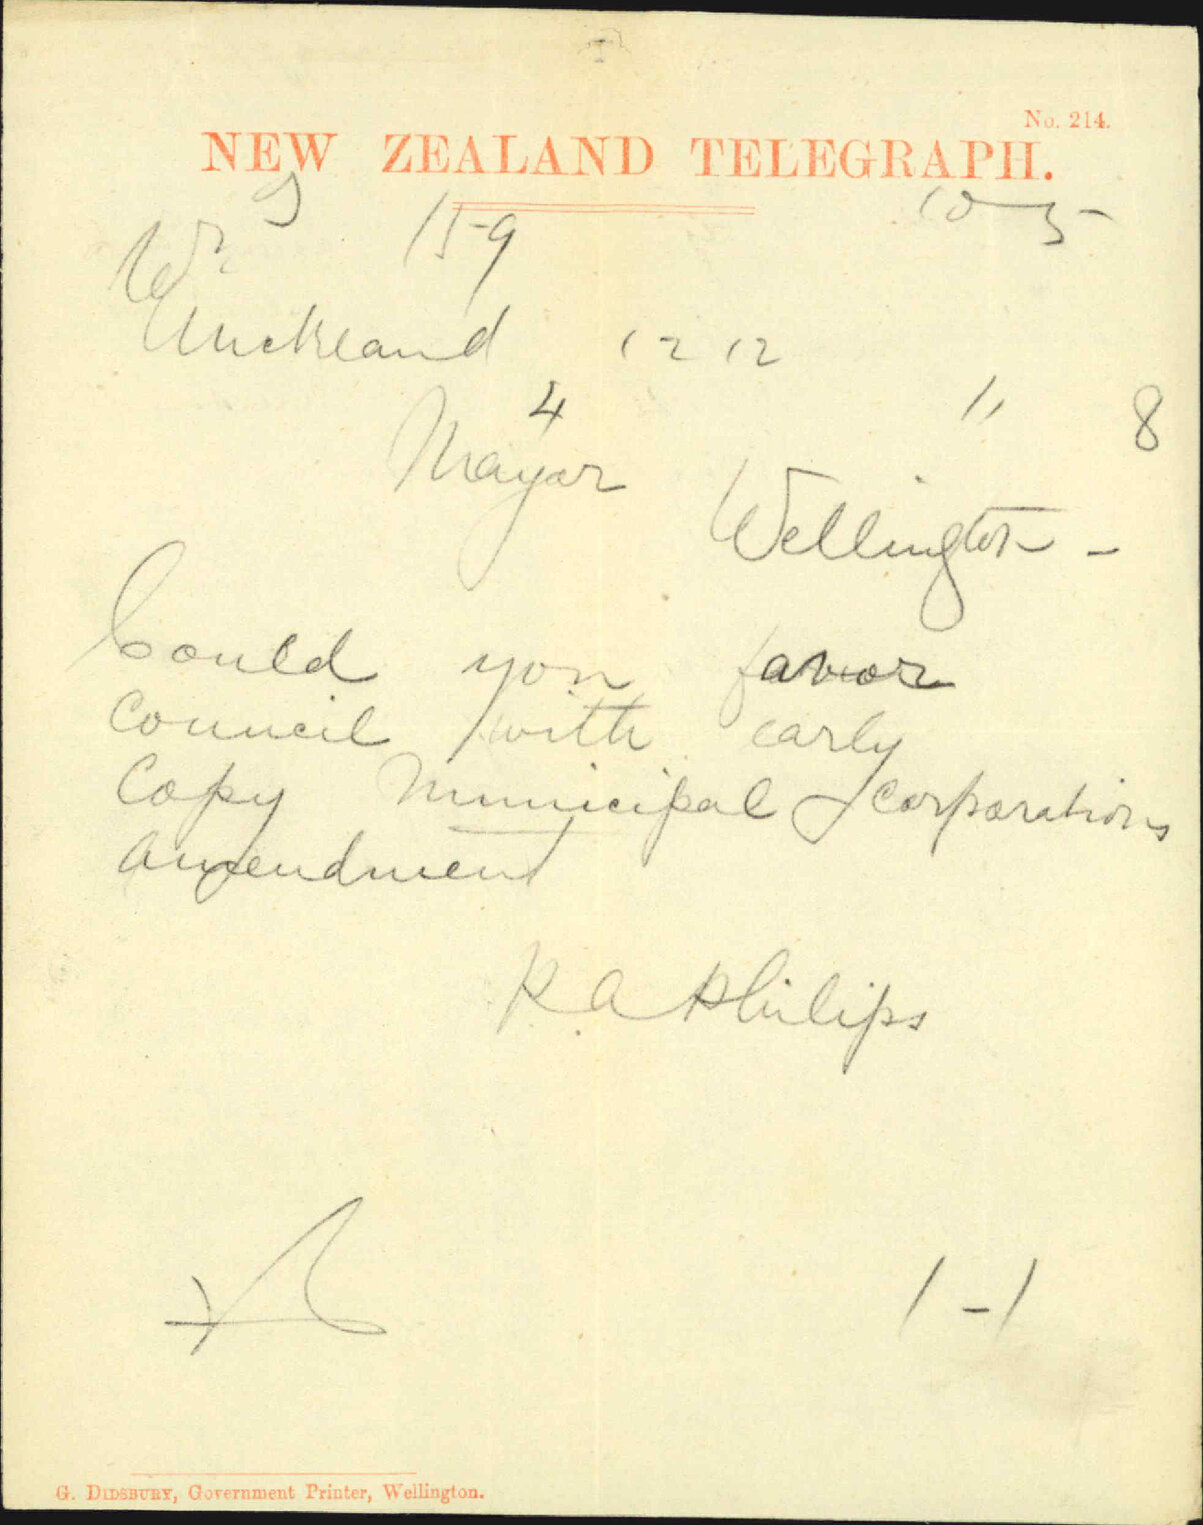 No. 214.
NEW ZEALAND TELEGRAPH.
159 10 5
Auckland 12 12
4 " 8
Mayor
Wellington -
Could you favor
Council with early
Copy Municipal Corporations
amendment
R A Philips
1-1
G. DIDSBURY, Government Printer, Wellington.